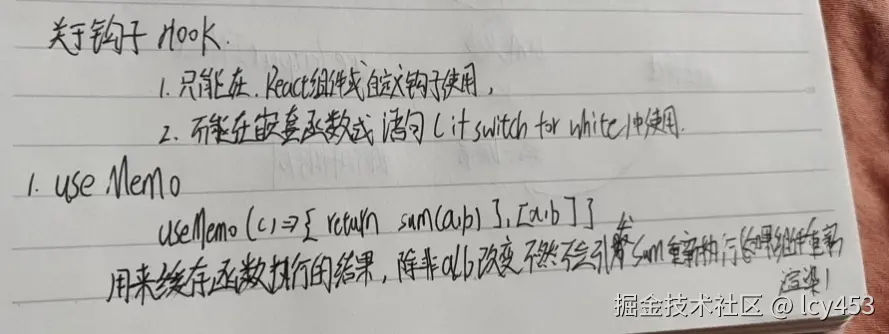 关于钩子 Hook.
1. 只能在. React组件或自定义钩子使用,
2. 不能在嵌套函数或 语句 (if switch for while)中使用.
1. use Memo
useMemo (()=>{ return sum(a,b) }, [a,b] )
用来缓存函数执行的结果, 除非a,b改变 不然不会引发 sum 重新执行(如果组件重新
渲染)
掘金技术社区 @ lcy453